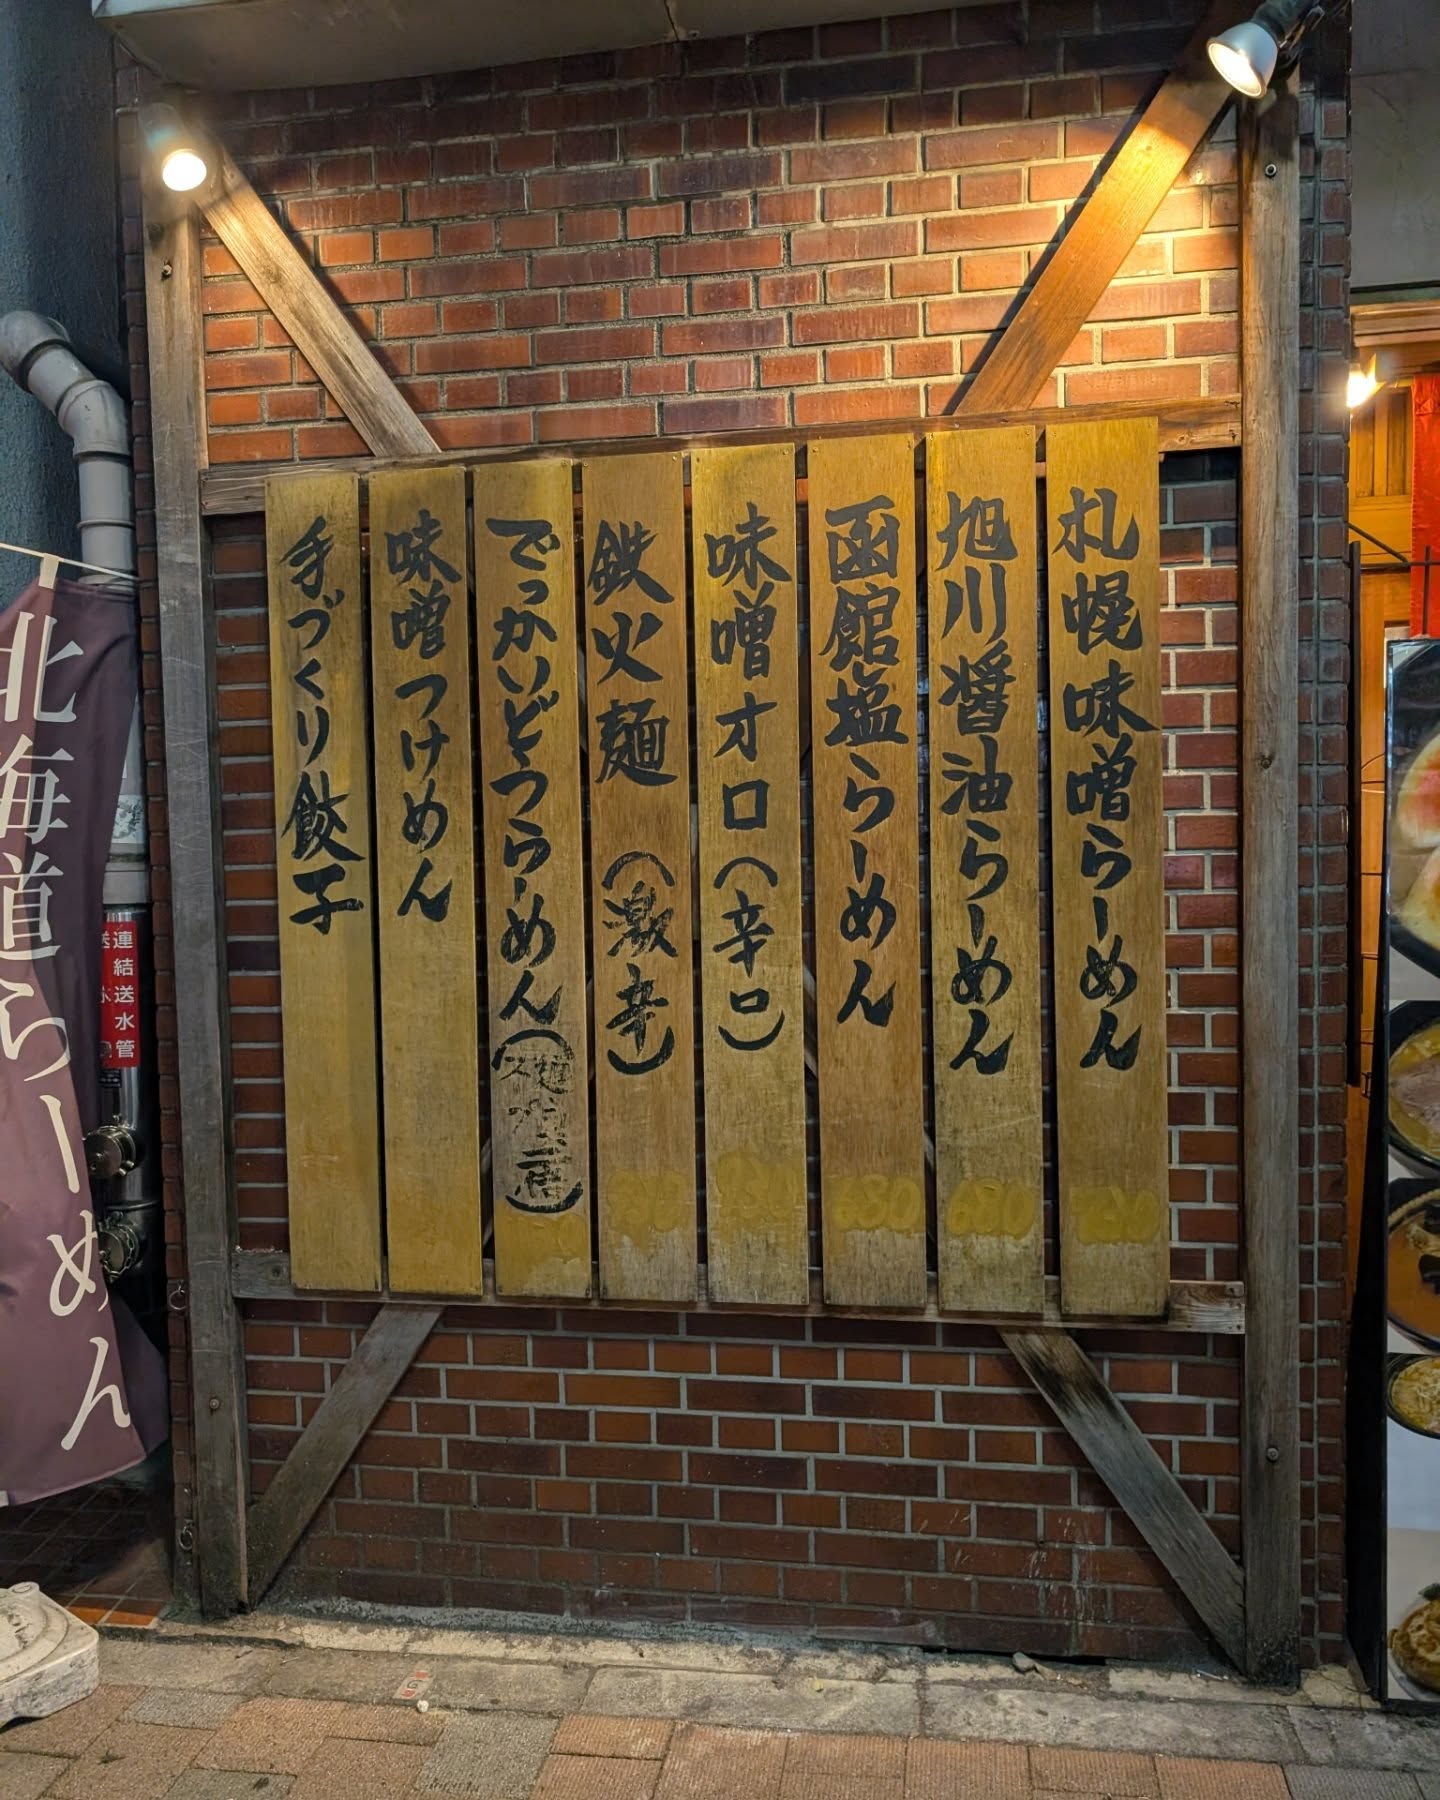 札幌味噌らーめん
旭川醤油らーめん
函館塩らーめん
味噌オロ(辛口)
鉄火麺 (激辛)
でっかいどうらーめん
味噌つけめん
手づくり餃子
680
北海道らーめん
連結送水管